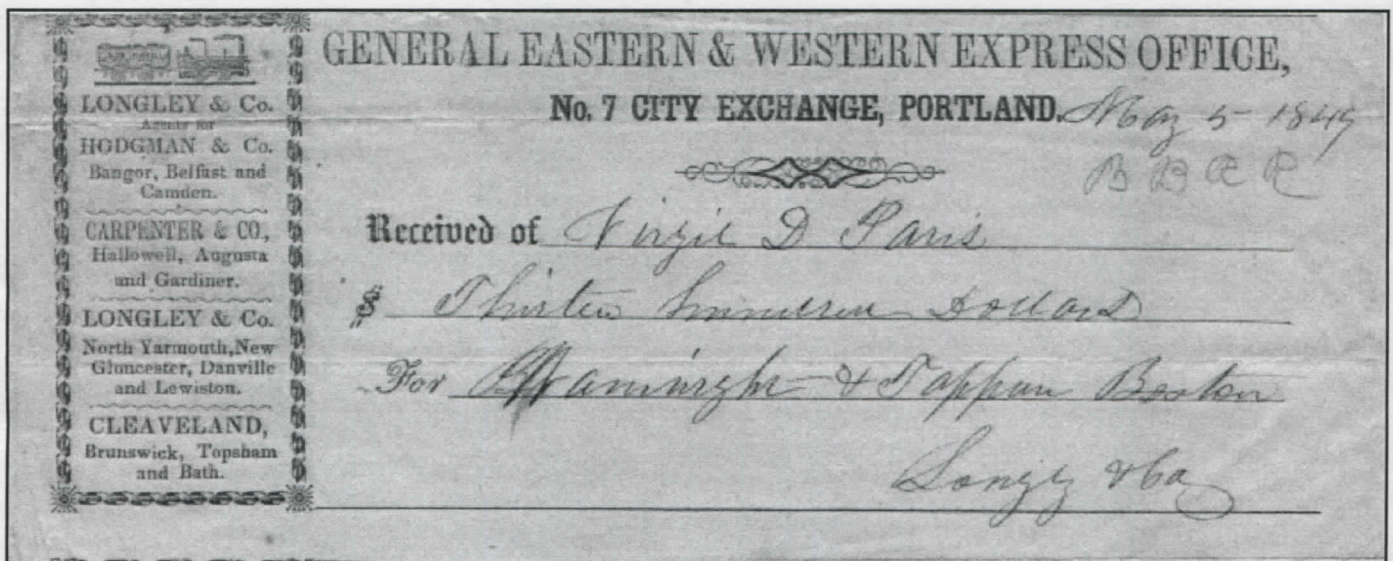 LONGLEY & Co.
Agents for
HODGMAN & Co.
Bangor, Belfast and
Camden.
CARPENTER & CO.,
Hallowell, Augusta
and Gardiner.
LONGLEY & Co.
North Yarmouth, New
Gloucester, Danville
and Lewiston.
CLEAVELAND,
Brunswick, Topsham
and Bath.
GENERAL EASTERN & WESTERN EXPRESS OFFICE,
No. 7 CITY EXCHANGE, PORTLAND. May 5 1849
B B
Received of Virgil D Paris
$ Dollars
For & Tappan Boston
Longley & Co